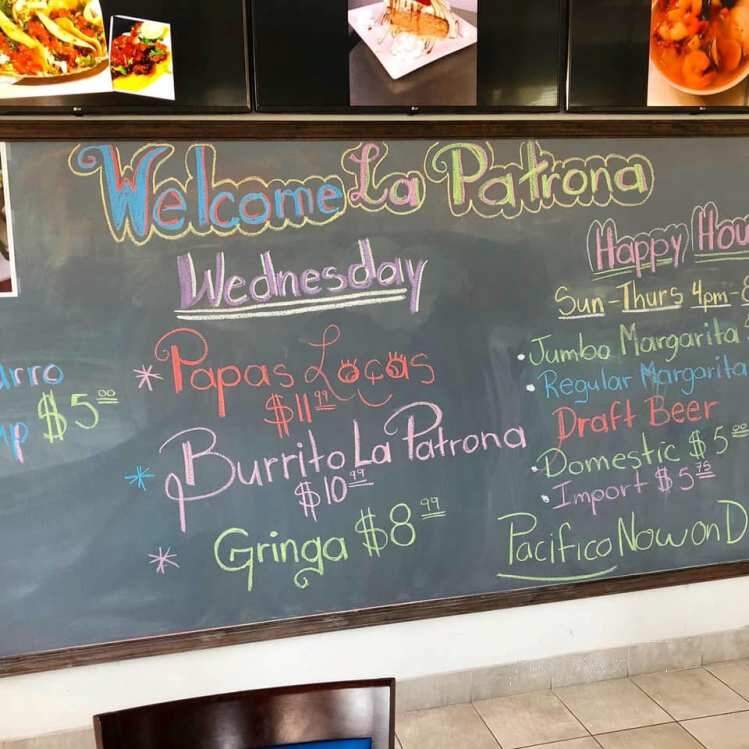 Welcome La Patrona
Wednesday
* Papas Locas
$11.99
* Burrito La Patrona
$10.99
* Gringa $8.99
$5.00
Happy
Sun-Thurs 4pm-
• Jumbo Margarita
• Regular Margarita
Draft Beer
• Domestic $5.00
• Import $5.75
Pacifico Now on